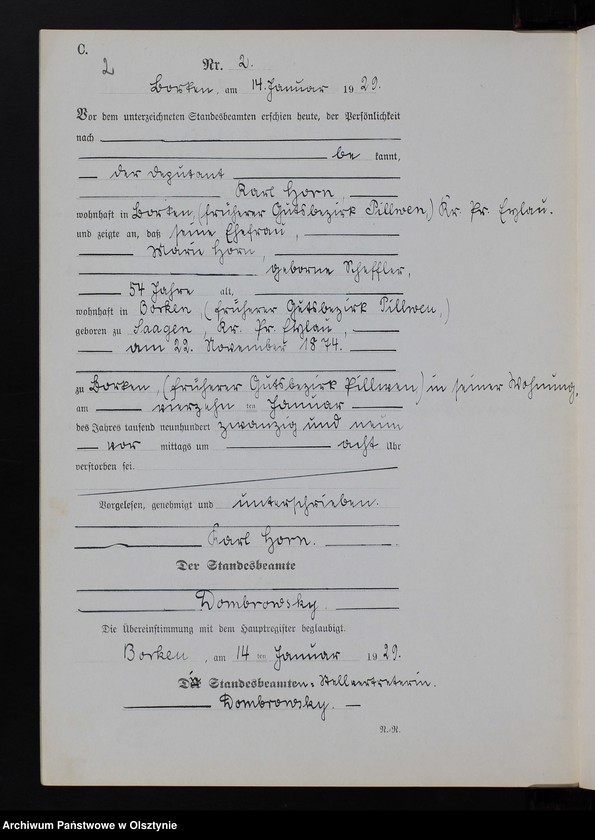 C.
2 Nr. 2.
Borken, am 14. Januar 1929.
Vor dem unterzeichneten Standesbeamten erschien heute, der Persönlichkeit
nach
be kannt,
der Deputant
Karl Horn,
wohnhaft in Borken, (früherer Gutsbezirk Pillwen,) Kr. Pr. Eylau.
und zeigte an, daß seine Ehefrau,
Marie Horn,
geborne Scheffler,
54 Jahre alt,
wohnhaft in Borken, (früherer Gutsbezirk Pillwen,)
geboren zu Saagen, Kr. Pr. Eylau,
am 22. November 1874.
zu Borken, (früherer Gutsbezirk Pillwen,) in seiner Wohnung.
am vierzehn ten Januar
des Jahres tausend neunhundert zwanzig und neun
vor mittags um acht Uhr
verstorben sei.
Vorgelesen, genehmigt und unterschrieben.
Karl Horn.
Der Standesbeamte
Dombrowsky.
Die Übereinstimmung mit dem Hauptregister beglaubigt.
Borken, am 14 ten Januar 1929.
Die Standesbeamten-Stellvertreterin.
Dombrowsky.
N.-N.
Archiwum Państwowe w Olsztynie